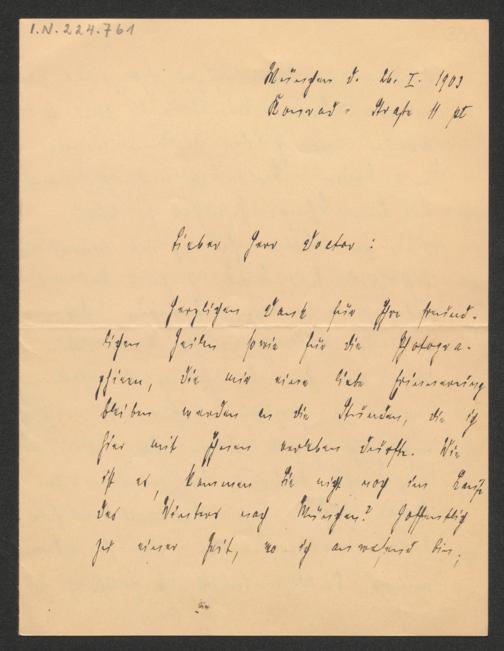 I.N. 224.761
München d. 26. I. 1903
Konrad-Straße 11 pt
Lieber Herr Doctor:
Herzlichen Dank für Ihre freund-
lichen Zeilen sowie für die Photogra-
phieen, die mir eine liebe Erinnerung
bleiben werden an die Stunden, die ich
hier mit Ihnen verleben durfte. Wie
ist es, kommen Sie nicht noch im Laufe
des Winters nach München? Hoffentlich
zu einer Zeit, wo ich anwesend bin;